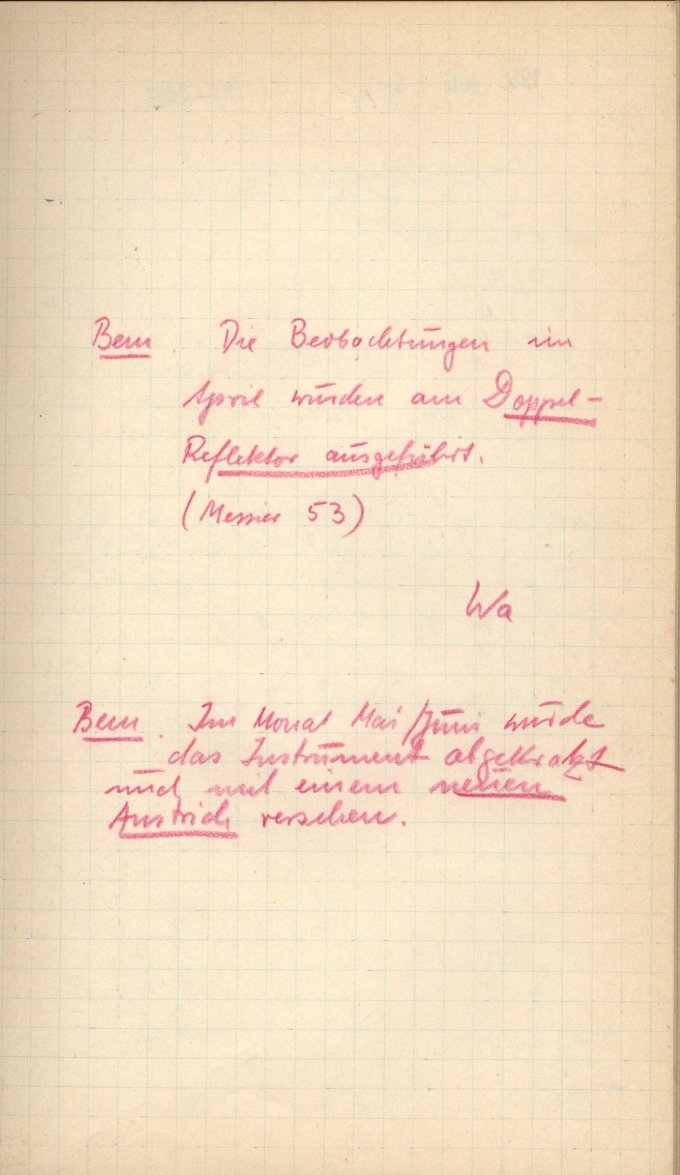 Bem. Die Beobachtungen im
April wurden am Doppel-
Reflektor ausgeführt.
(Messier 53)
Wa
Bem. Im Monat Mai/Juni wurde
das Instrument abgekratzt
und mit einem neuen
Anstrich versehen.